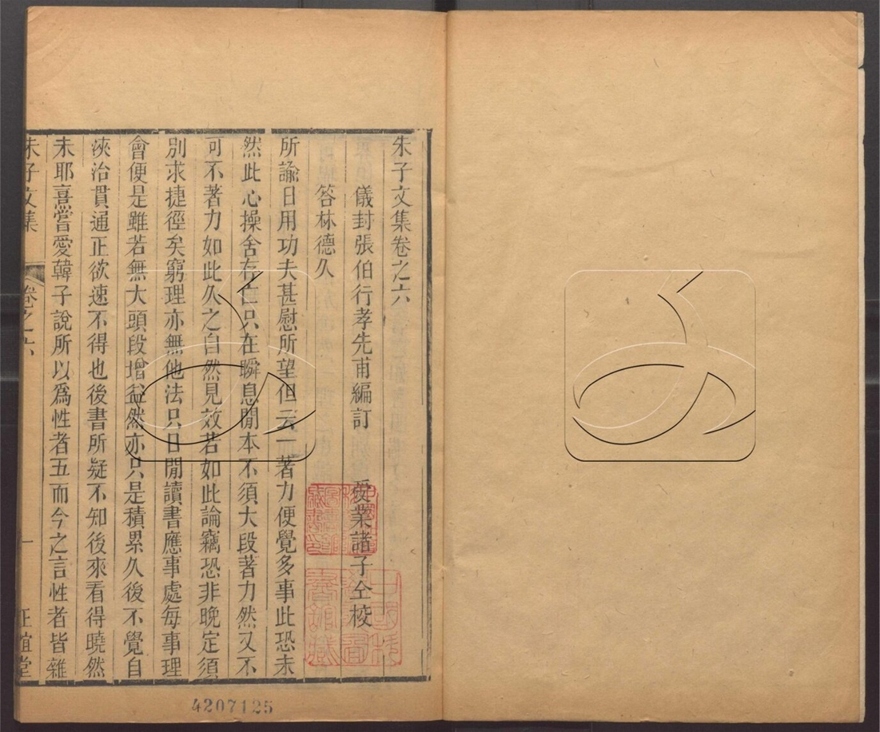 朱子文集卷之六
儀封張伯行孝先甫編訂 受業諸子仝校
答林德久
所諭日用功夫甚慰所望但云一著力便覺多事此恐未
然此心操舍存亡只在瞬息間本不須大段著力然又不
可不著力如此久之自然見效若如此論竊恐非晚定須
別求捷徑矣窮理亦無他法只日間讀書應事處每事理
會便是雖若無大頭段增益然亦只是積累久後不覺自
浹洽貫通正欲速不得也後書所疑不知後來看得曉然
未耶喜嘗愛韓子說所以爲性者五而今之言性者皆雜
朱子文集 卷之六 一 正誼堂
4207125